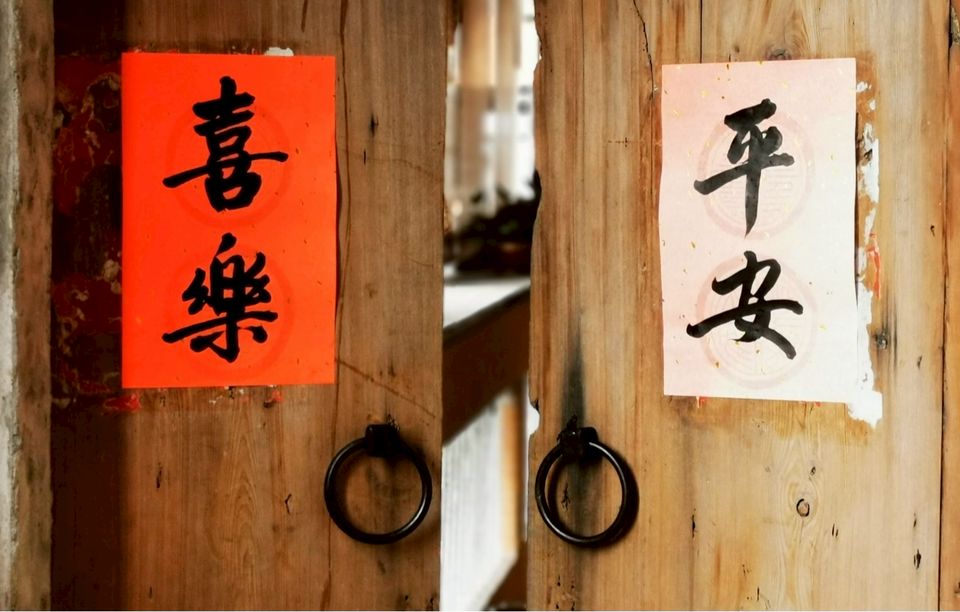 喜樂
平安